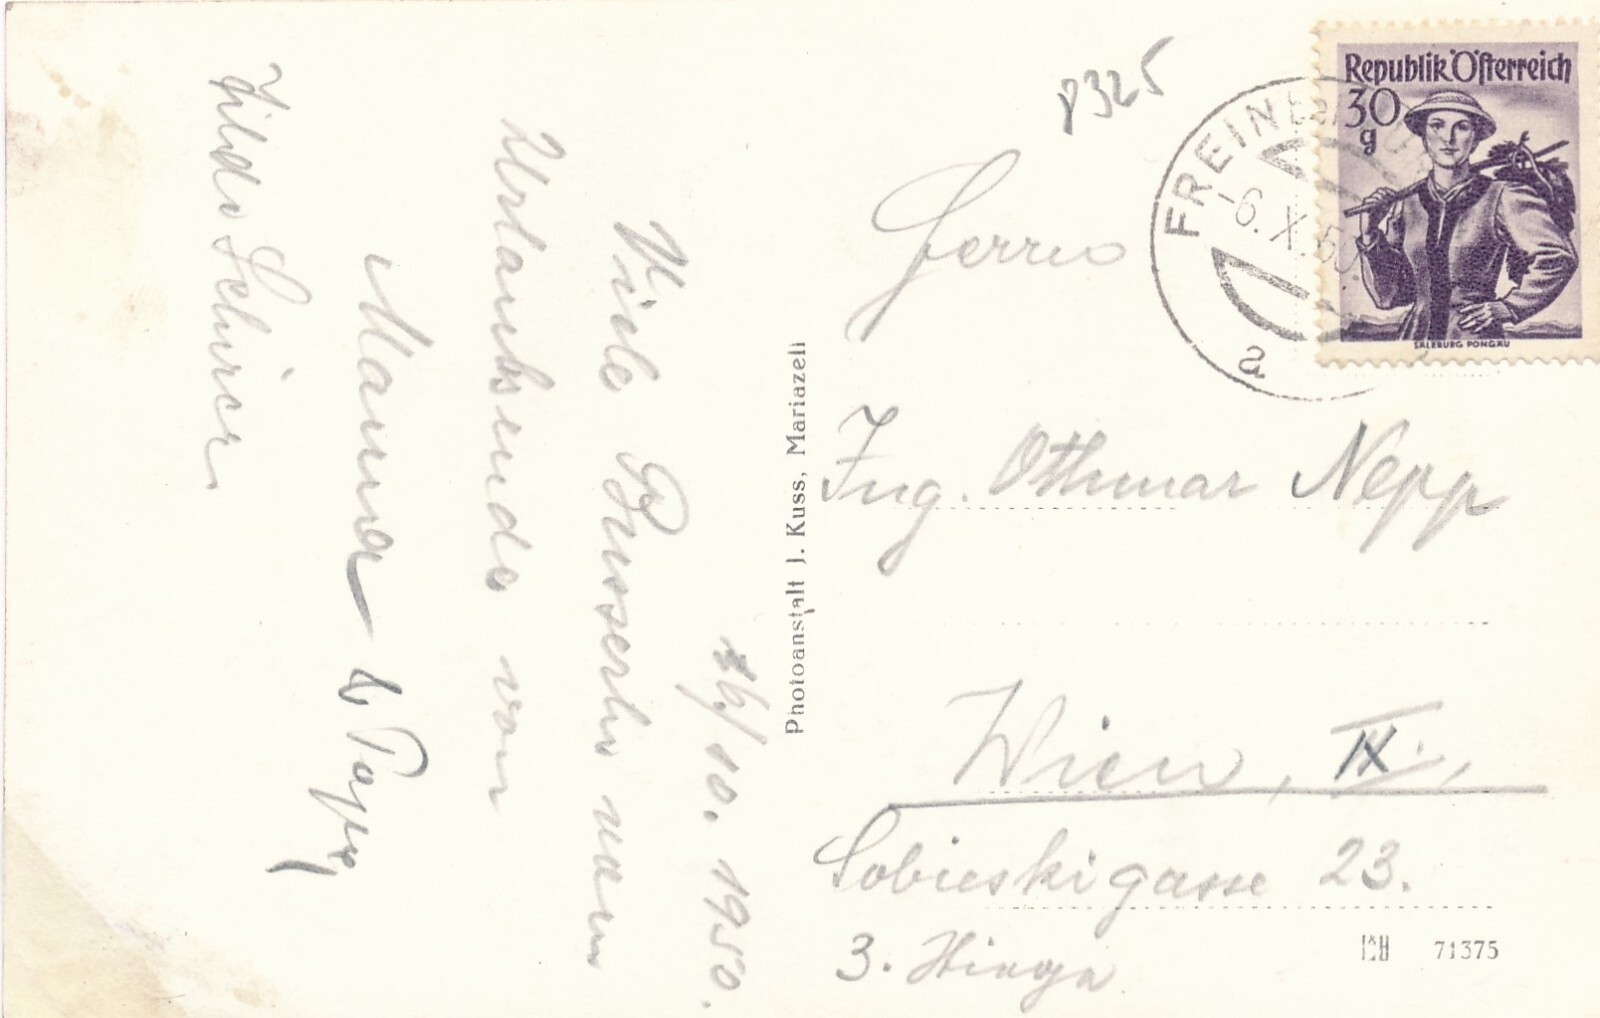 36/10. 1950.
Viele Busserln vom
Urlaubsende von
Mama & Papa
Hilde Schwer
Photoanstalt J. Kuss, Mariazell
8325
FREIN
-6.X.50
a
Republik Österreich
30
g
SALZBURG PONGAU
Herrn
Ing. Othmar Nepp
Wien, IX.,
Sobieskigasse 23.
3. Stiege
71375